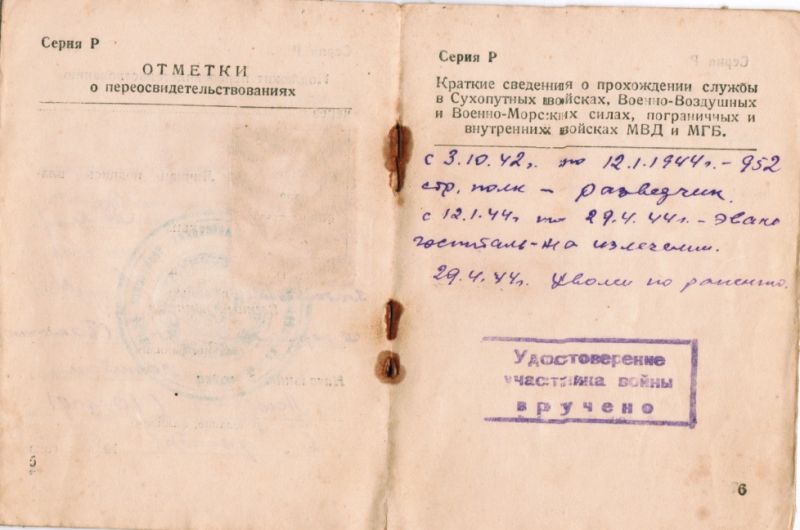 Серия Р
ОТМЕТКИ
о переосвидетельствованиях
5
Серия Р
Краткие сведения о прохождении службы
в Сухопутных войсках, Военно-Воздушных
и Военно-Морских силах, пограничных и
внутренних войсках МВД и МГБ.
с 3.10.42г. по 12.1.1944г. - 952
стр. полк - разведчик.
с 12.1.44 по 29.4.44г. - Эвако
госпиталь - на излечении.
29.4.44г. Уволен по ранению.
Удостоверение
участника войны
вручено
6